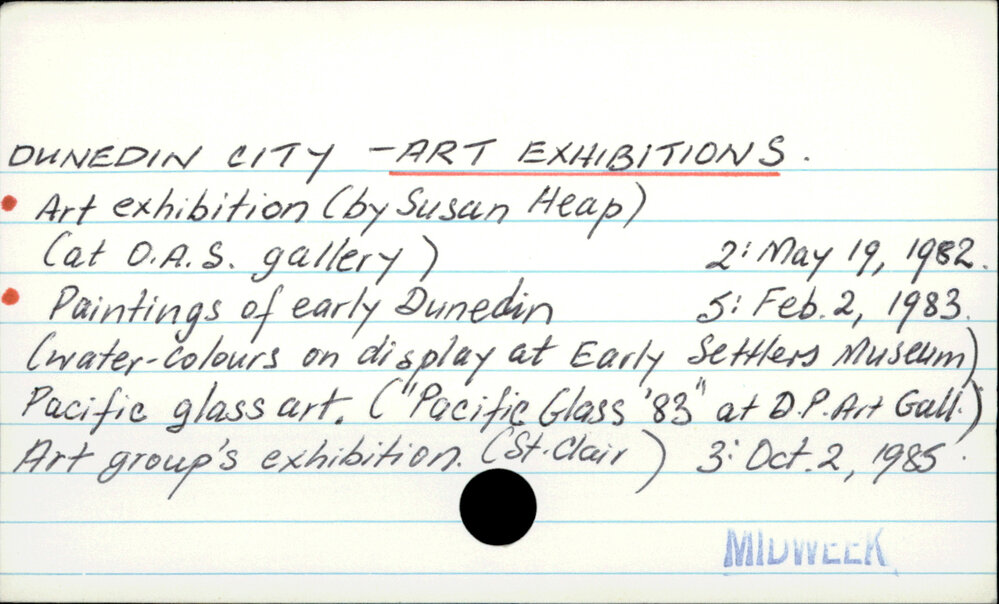 DUNEDIN CITY - ART EXHIBITIONS.
• Art exhibition (by Susan Heap)
(at O.A.S. gallery) 2: May 19, 1982.
• Paintings of early Dunedin 5: Feb. 2, 1983.
(water-colours on display at Early Settlers Museum)
Pacific glass art. ("Pacific Glass '83" at D.P. Art Gall.)
Art group's exhibition. (St. Clair) 3: Oct. 2, 1985.
MIDWEEK